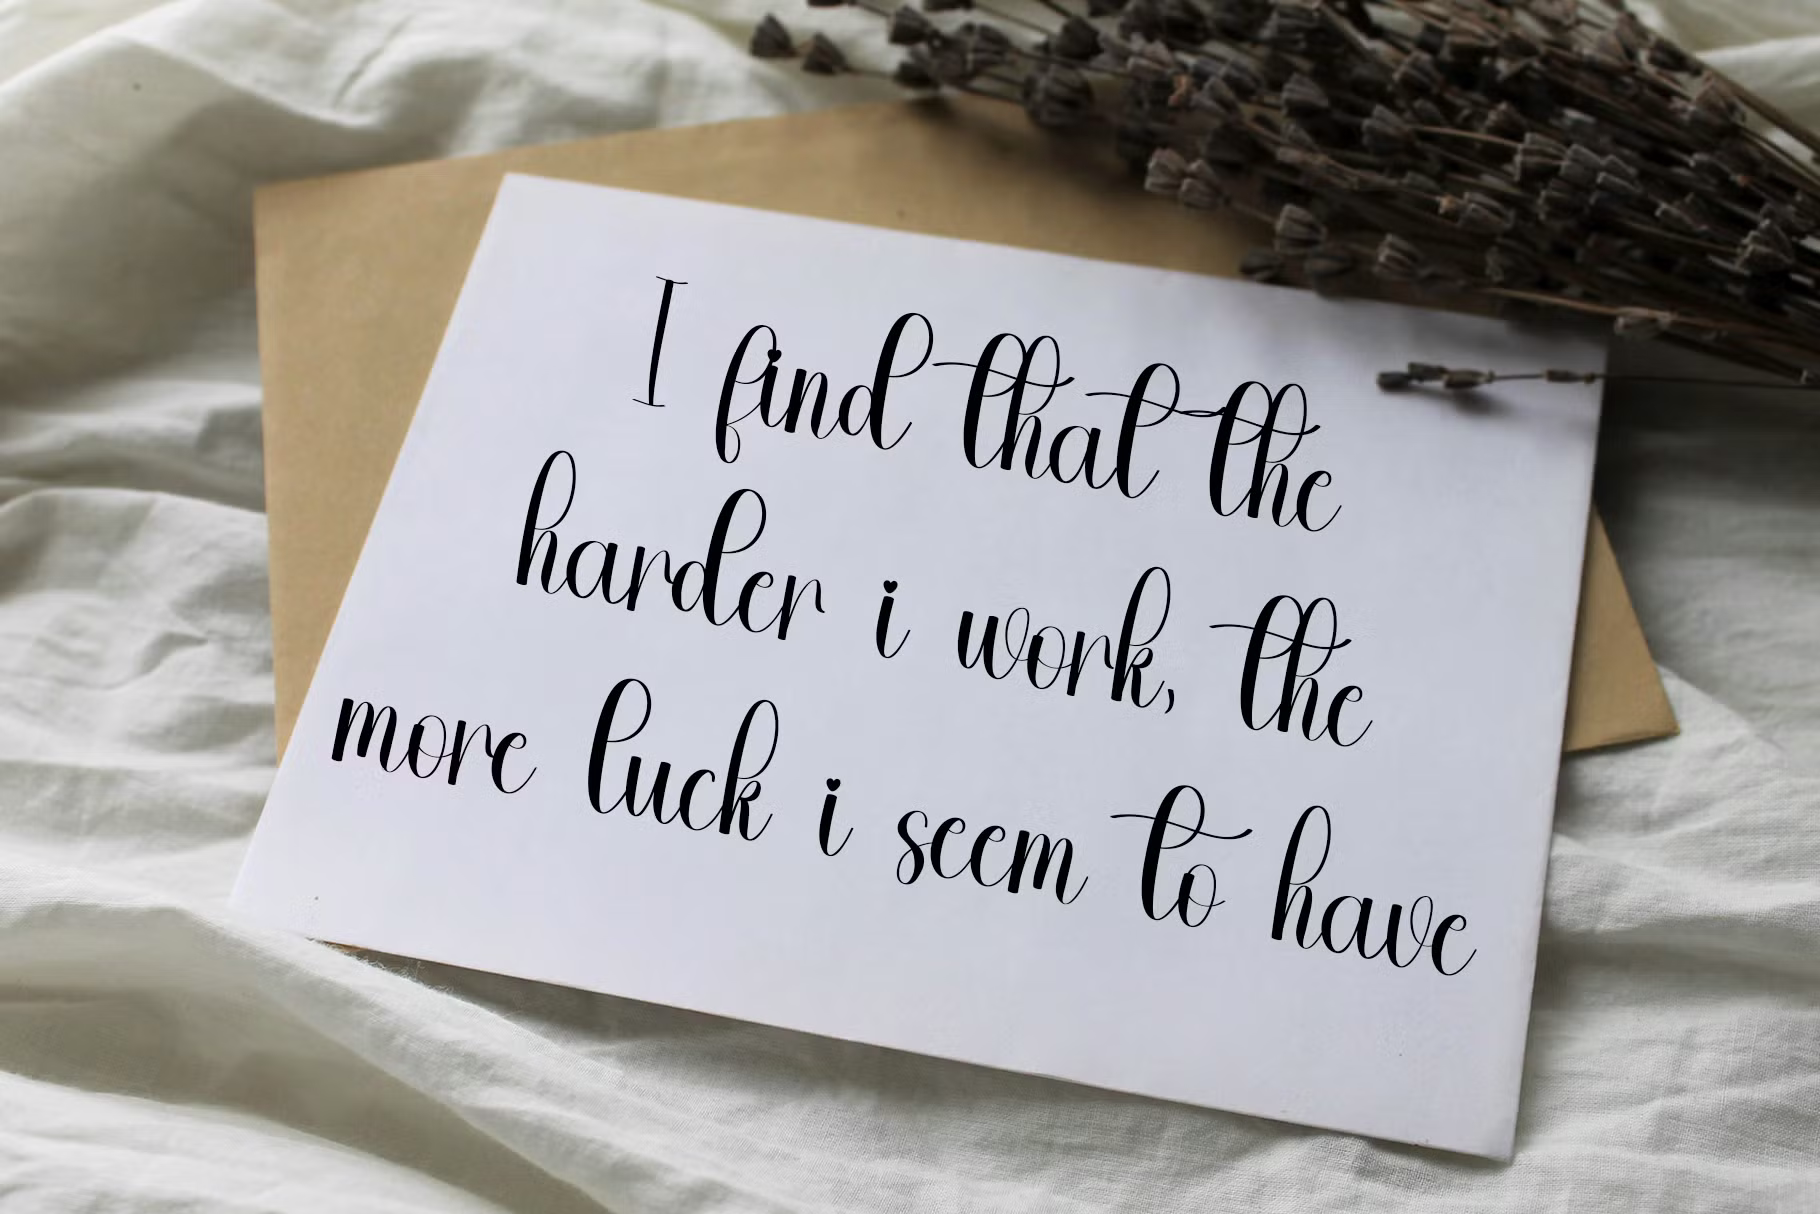 I find that the
harder i work, the
more luck i seem to have